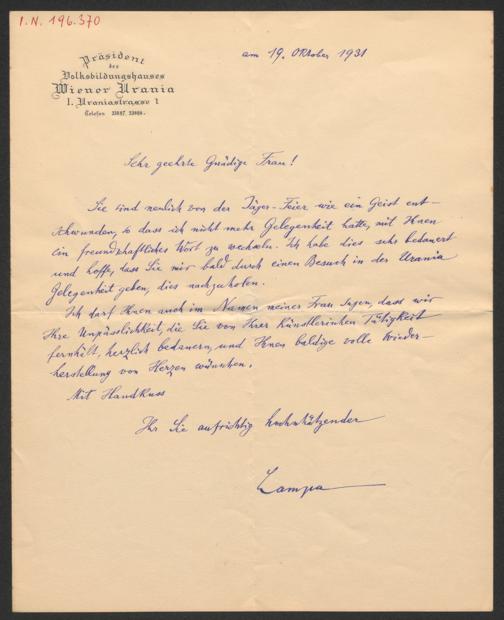 I.N. 196.370
Präsident
des
Volksbildungshauses
Wiener Urania
1. Uraniastrasse 1
Telefon
am 19. Oktober 1931
Sehr geehrte Gnädige Frau!
Sie sind neulich von der Jäger-Feier wie ein Geist ent-
schwunden, so dass ich nicht mehr Gelegenheit hatte, mit Ihnen
ein freundschaftliches Wort zu wechseln. Ich habe dies sehr bedauert
und hoffe, dass Sie mir bald durch einen Besuch in der Urania
Gelegenheit geben, dies nachzuholen.
Ich darf Ihnen auch im Namen meiner Frau sagen, dass wir
Ihre Unpässlichkeit, die Sie von Ihrer künstlerischen Tätigkeit
fernhält, herzlich bedauern, und Ihnen baldige volle Wieder-
herstellung von Herzen wünschen.
Mit Handkuss
Ihr Sie aufrichtig hochschätzender
Lampa